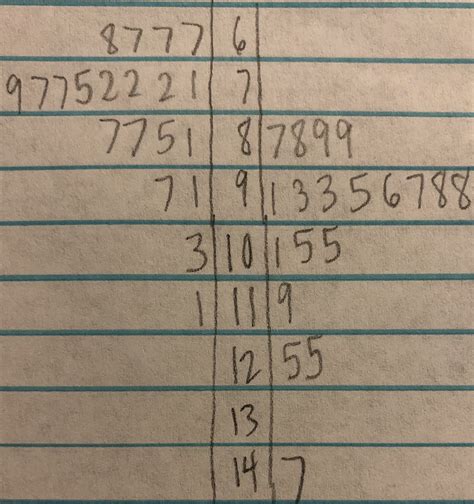 8777|6|
97752221|7|
7751|8|7899
71|9|133567 88
3|10|155
1|11|9
12|55
13|
14|7